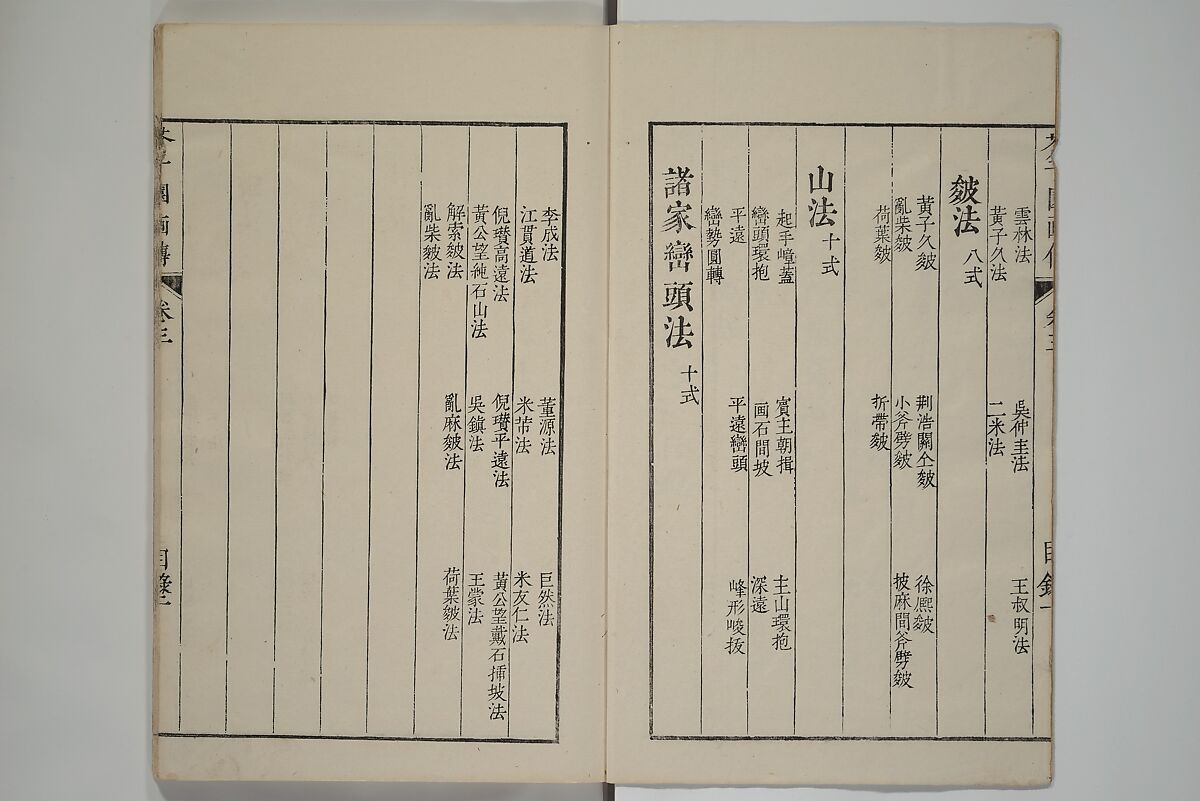 雲林法 吳仲圭法 王叔明法
黃子久法 二米法
皴法 八式
黃子久皴 荆浩關仝皴 徐熙皴
亂柴皴 小斧劈皴 披麻間斧劈皴
荷葉皴 折帶皴
山法 十式
起手嶂蓋 賓主朝揖 主山環抱
巒頭環抱 画石間坡 深遠
平遠 平遠巒頭 峰形峻拔
巒勢圓轉
諸家巒頭法 十式
李成法 董源法 巨然法
江貫道法 米芾法 米友仁法
倪瓚高遠法 倪瓚平遠法 黃公望戴石揷坡法
黃公望純石山法 吳鎮法 王蒙法
解索皴法 亂麻皴法 荷葉皴法
亂柴皴法
園画傳 卷三 目錄二